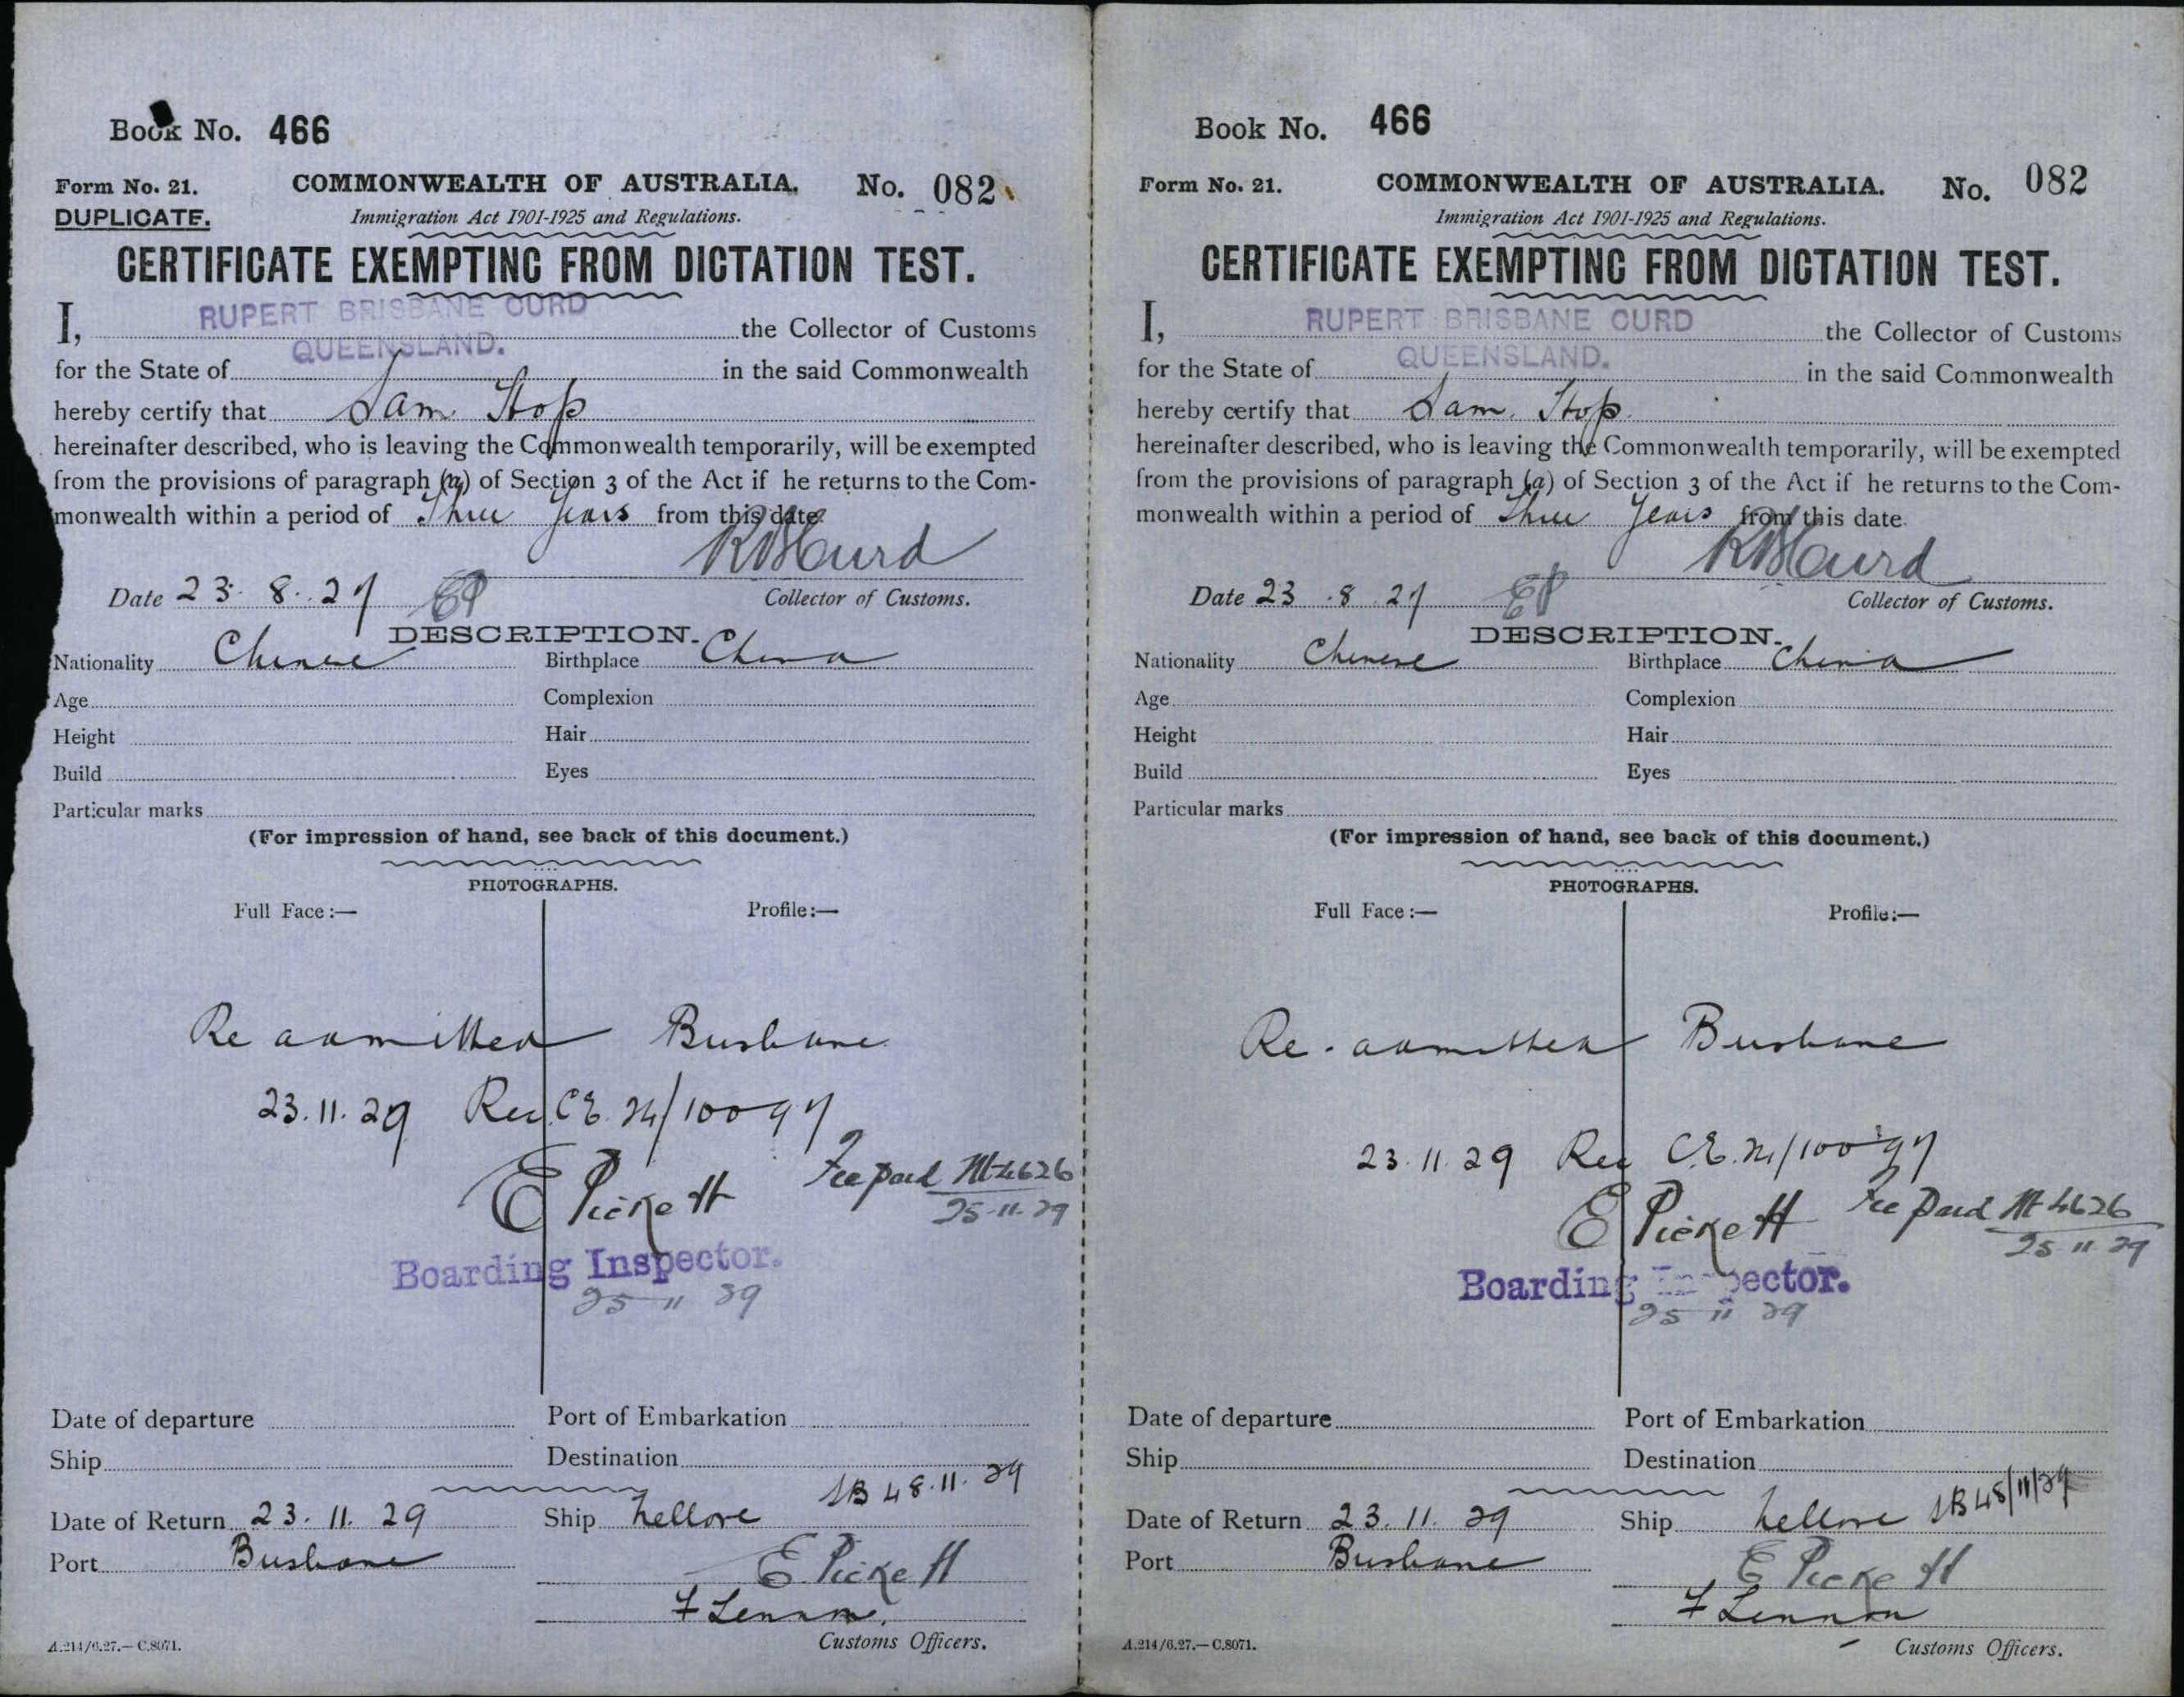 Book No. 466
Form No. 21. COMMONWEALTH OF AUSTRALIA. No. 082
DUPLICATE. Immigration Act 1901-1925 and Regulations.
CERTIFICATE EXEMPTING FROM DICTATION TEST.
I, RUPERT BRISBANE CURD the Collector of Customs
for the State of QUEENSLAND. in the said Commonwealth
hereby certify that Sam Hop
hereinafter described, who is leaving the Commonwealth temporarily, will be exempted
from the provisions of paragraph (a) of Section 3 of the Act if he returns to the Com-
monwealth within a period of Three Years from this date.
RBCurd
Date 23. 8. 27 EP Collector of Customs.
DESCRIPTION.
Nationality Chinese Birthplace China
Age Complexion
Height Hair
Build Eyes
Particular marks
(For impression of hand, see back of this document.)
PHOTOGRAPHS.
Full Face:— Profile:—
Re admitted Brisbane
23.11.29 Rec. C.E. 24/10097
E Pickett Fee paid 4626
25-11-29
Boarding Inspector.
25 11 29
Date of departure Port of Embarkation
Ship Destination
SB 48.11.29
Date of Return 23. 11. 29 Ship Nellore
Port Brisbane
E Pickett
F Lennon
Customs Officers.
A.214/6.27.—C.8071.
Book No. 466
Form No. 21. COMMONWEALTH OF AUSTRALIA. No. 082
Immigration Act 1901-1925 and Regulations.
CERTIFICATE EXEMPTING FROM DICTATION TEST.
I, RUPERT BRISBANE CURD the Collector of Customs
for the State of QUEENSLAND. in the said Commonwealth
hereby certify that Sam Hop
hereinafter described, who is leaving the Commonwealth temporarily, will be exempted
from the provisions of paragraph (a) of Section 3 of the Act if he returns to the Com-
monwealth within a period of Three Years from this date.
RBCurd
Date 23.8.27 EP Collector of Customs.
DESCRIPTION.
Nationality Chinese Birthplace China
Age Complexion
Height Hair
Build Eyes
Particular marks
(For impression of hand, see back of this document.)
PHOTOGRAPHS.
Full Face:— Profile:—
Re-admitted Brisbane
23.11.29 Rec C.E. 24/10097
E Pickett Fee paid 4626
25 11 29
Boarding Inspector.
25 11 29
Date of departure Port of Embarkation
Ship Destination
Date of Return 23.11.29 Ship Nellore SB 48/11/29
Port Brisbane
E Pickett
F Lennon
Customs Officers.
A.214/6.27.—C.8071.